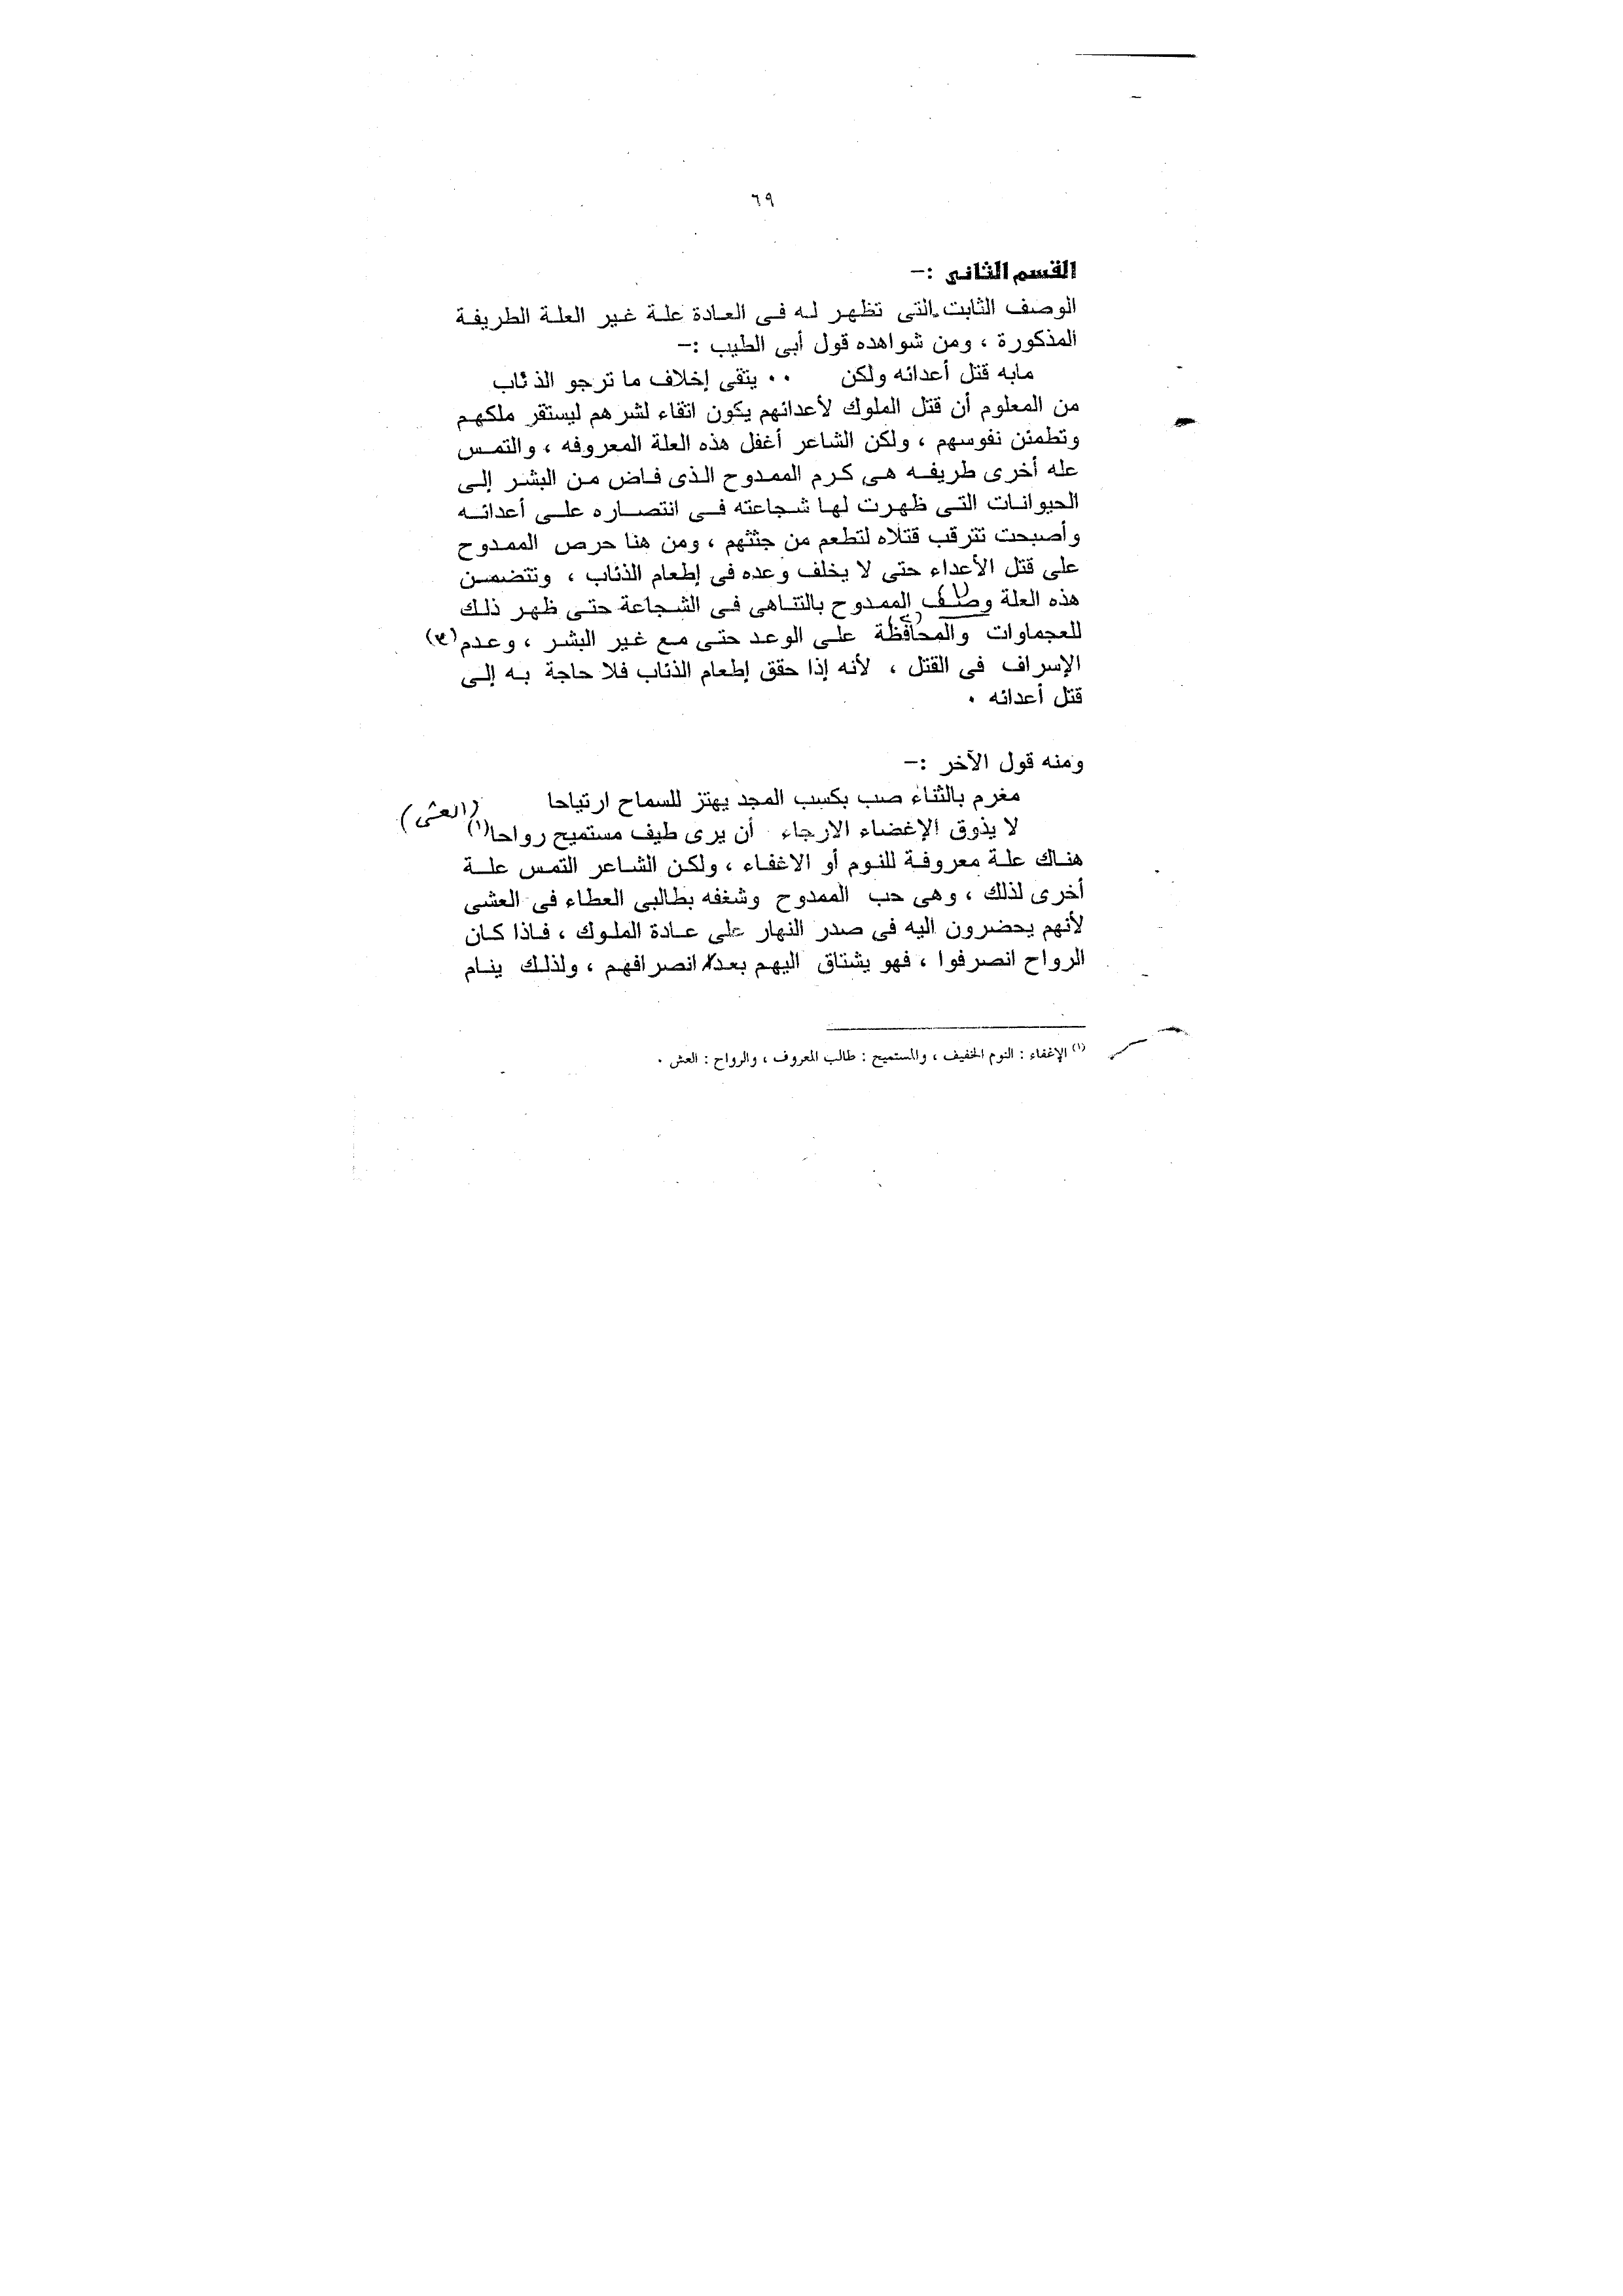 ٦٩
القسم الثانى :-
الوصف الثابت التى تظهر له فى العادة علة غير العلة الطريفة
المذكورة ، ومن شواهده قول أبى الطيب :-
مابه قتل أعدائه ولكن .. يتقى إخلاف ما ترجو الذئاب
من المعلوم أن قتل الملوك لأعدائهم يكون اتقاء لشرهم ليستقر ملكهم
وتطمئن نفوسهم ، ولكن الشاعر أغفل هذه العلة المعروفه ، والتمس
عله أخرى طريفه هى كرم الممدوح الذى فاض من البشر إلى
الحيوانات التى ظهرت لها شجاعته فى انتصاره على أعدائه
وأصبحت تترقب قتلاه لتطعم من جثثهم ، ومن هنا حرص الممدوح
على قتل الأعداء حتى لا يخلف وعده فى إطعام الذئاب ، وتتضمن
هذه العلة الممدوح بالتناهى فى الشجاعة حتى ظهر ذلك
للعجماوات والمحافظة على الوعد حتى مع غير البشر ، وعدم
الإسراف فى القتل ، لأنه إذا حقق إطعام الذئاب فلا حاجة به إلى
قتل أعدائه .
ومنه قول الآخر :-
مغرم بالثناء صب بكسب المجد يهتز للسماح ارتياحا
لا يذوق الإغضاء الارجاء أن يرى طيف مستميح رواحا(١) (العشى)
هناك علة معروفة للنوم أو الاغفاء ، ولكن الشاعر التمس علة
أخرى لذلك ، وهى حب الممدوح وشغفه بطالبى العطاء فى العشى
لأنهم يحضرون اليه فى صدر النهار على عادة الملوك ، فاذا كان
الرواح انصرفوا ، فهو يشتاق اليهم بعد انصرافهم ، ولذلك ينام
(١) الإغفاء : النوم الخفيف ، والمستميح : طالب المعروف ، والرواح : العش .